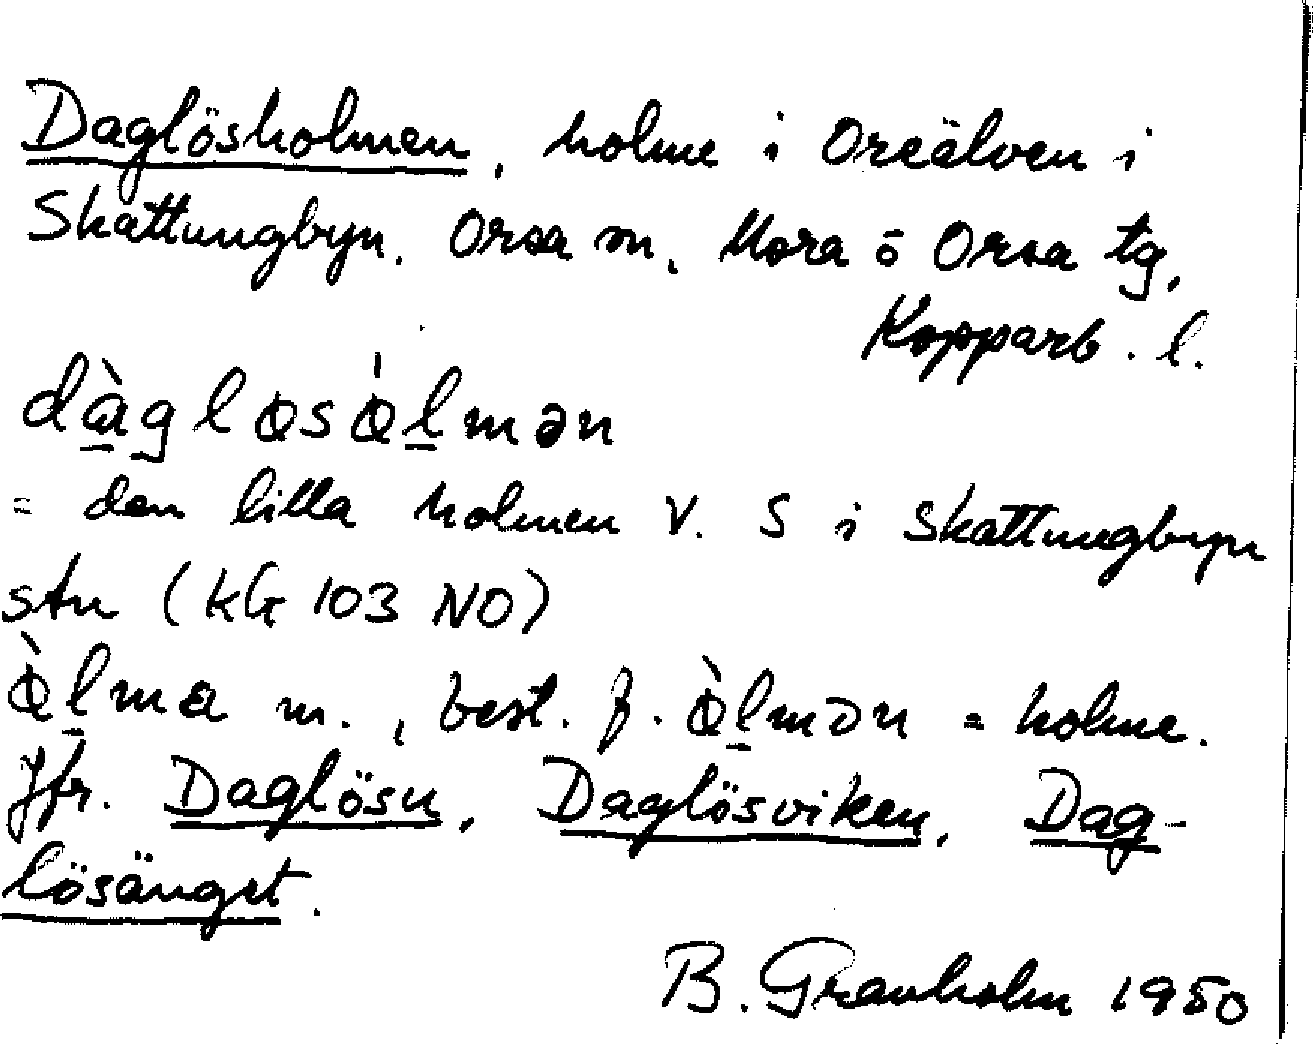 Daglösholmen, holme i Oreälven i
Skattungbyn. Orsa sn, Mora o Orsa tg,
Kopparb. l.
dàglɵsɵ́lmən
= den lilla holmen V. S i Skattungbyn
stn (kG 103 NO)
ɵ̀lma m., best. f. ɵ̀lmən = holme.
Jfr. Daglösn, Daglösviken, Dag-
lösänget.
B. Granholm 1950